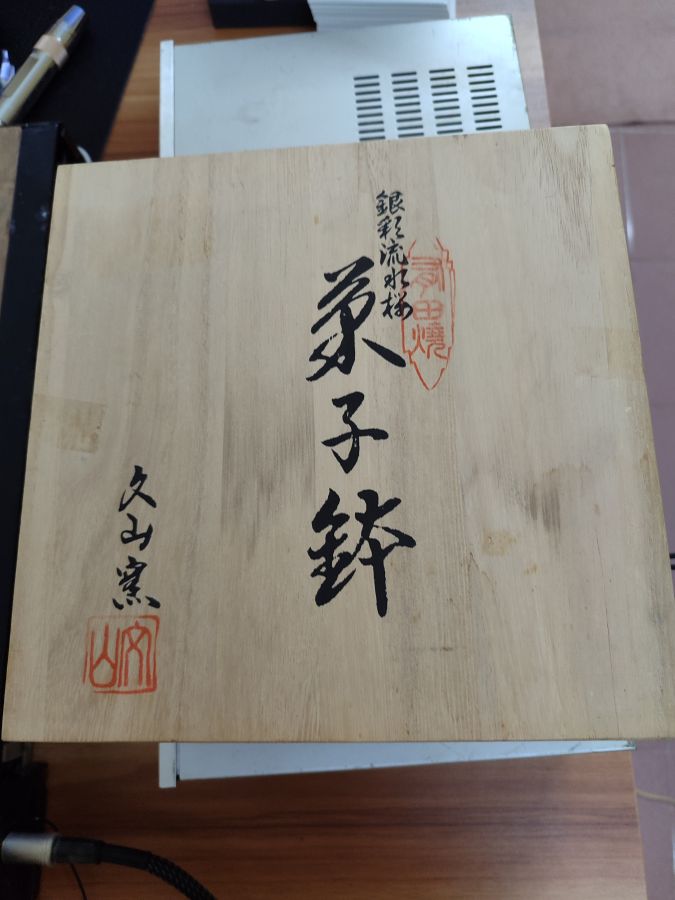 有田焼
銀彩流水桜
菓子鉢
文山窯
文山